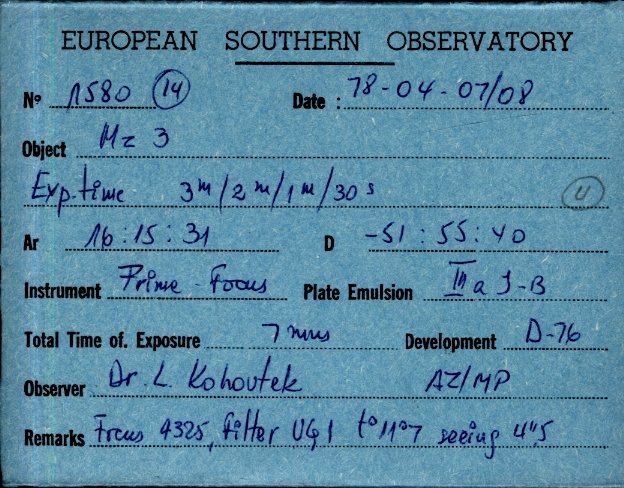 EUROPEAN SOUTHERN OBSERVATORY
Nº 1580 (14) Date : 78-04-07/08
Object Mz 3
Exp. time 3m/2m/1m/30s (4)
Ar 16:15:31 D -51:55:40
Instrument Prime-Focus Plate Emulsion IIIa J-B
Total Time of. Exposure 7 mns Development D-76
Observer Dr. L. Kohoutek AZ/MP
Remarks Focus 4325, filter UG1 t° 11°7 seeing 4",5